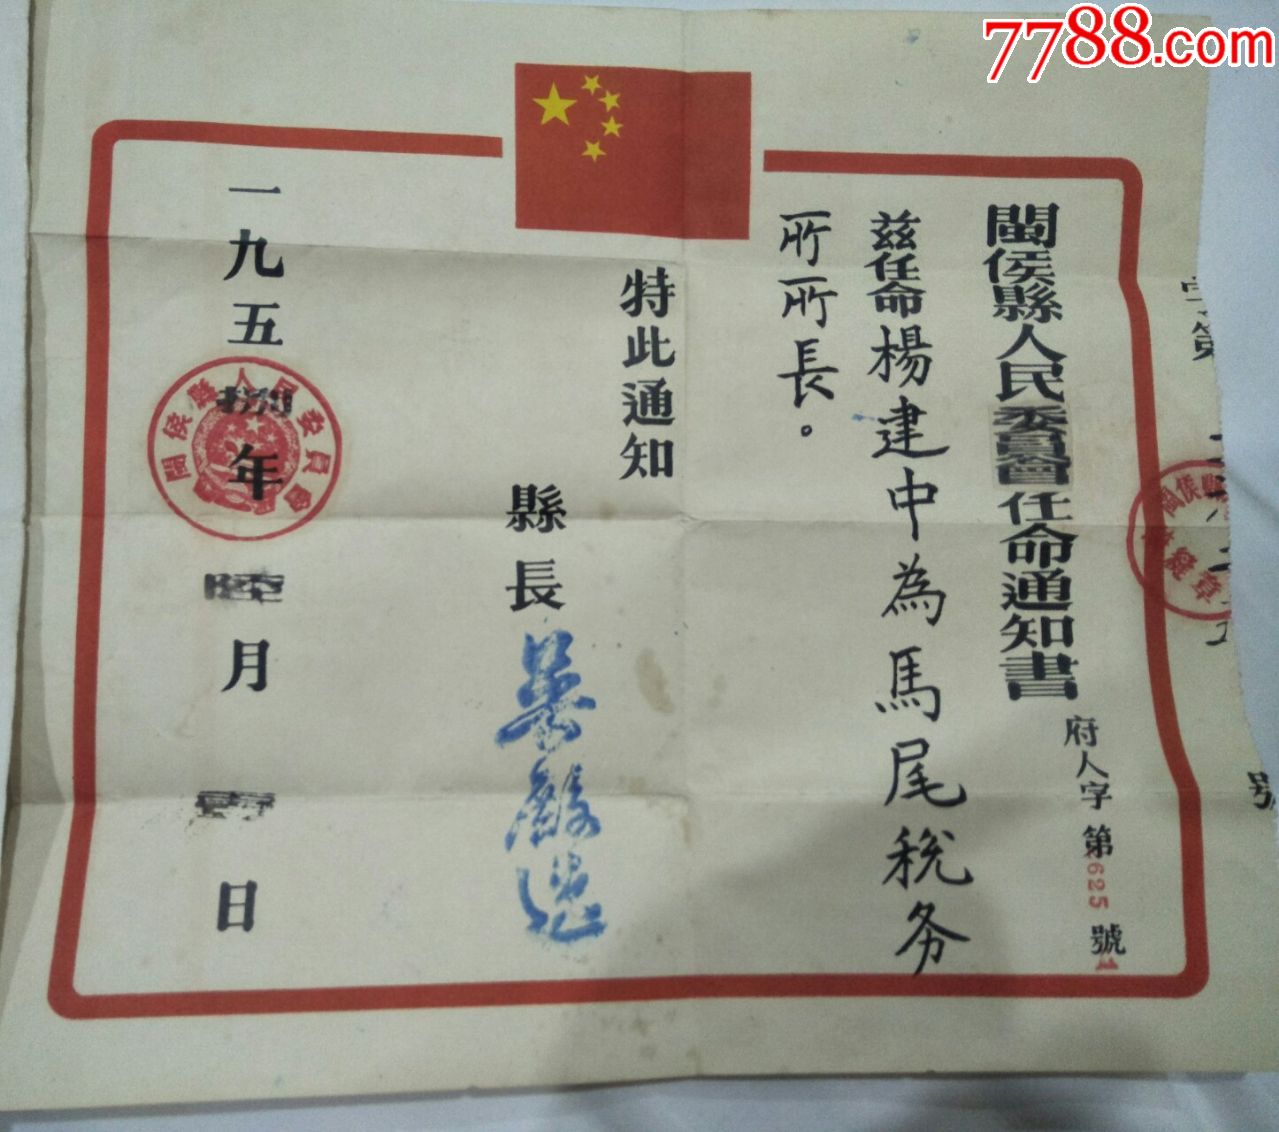 7788.com
閩侯縣人民委員會任命通知書
府人字第625號
茲任命楊建中為馬尾稅务
所所長。
特此通知
縣長
一九五捌年陸月 日
閩侯縣人民委員會
字第
號